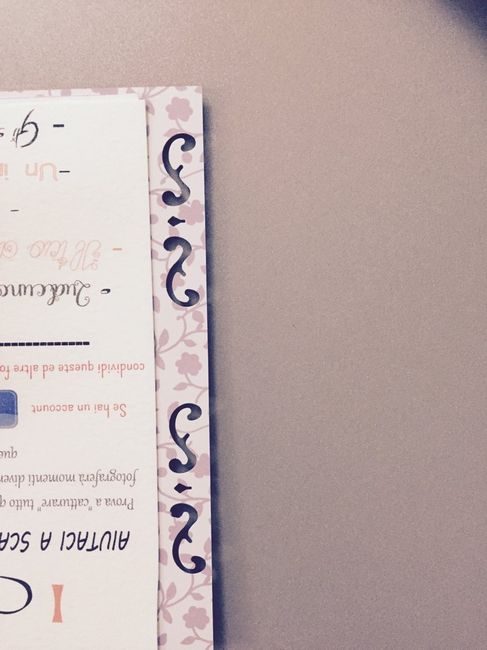 I
AIUTACI A SCA
Prova a "catturare" tutto q
fotograferà momenti diver
que
Se hai un account
condividi queste ed altre fo
- Qualcuno
- Il tuo
-
- Un i
- Gli s